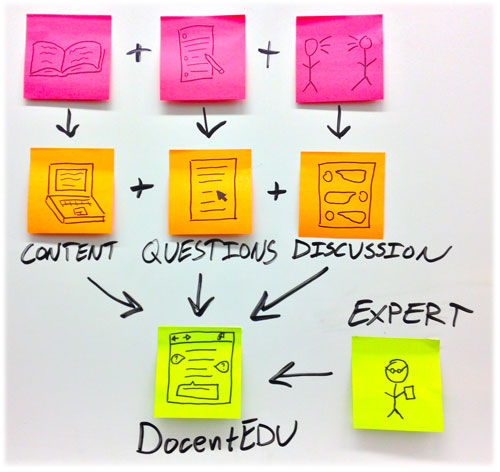 + +
+ +
CONTENT QUESTIONS DISCUSSION
EXPERT
DocentEDU